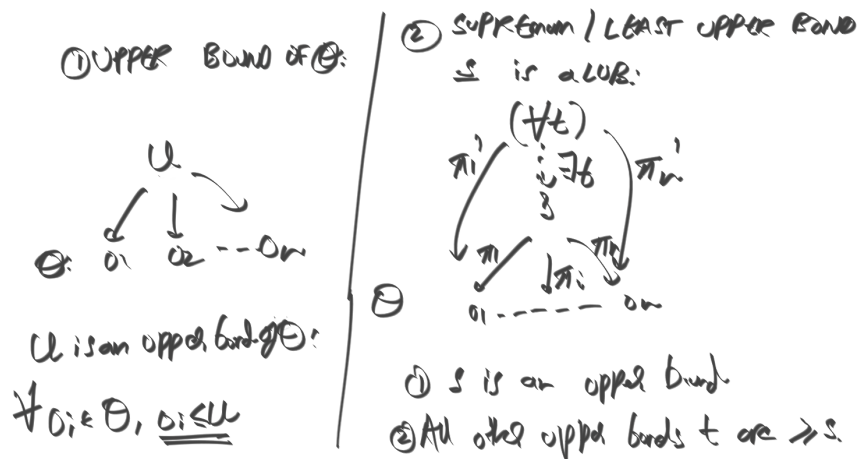 ① UPPER BOUND OF Θ:
U
Θ: O1 O2 --- On
U is an upper bond of Θ:
∀ Oi ∈ Θ, Oi ≤ U
② SUPREmum / LEAST UPPER BOND
S is a LUB:
(∀t)
π1' ∃f πn'
S
π1 πi πn
Θ O1 ------- On
① S is an upper bund.
② All other upper bonds t are ≥ S.